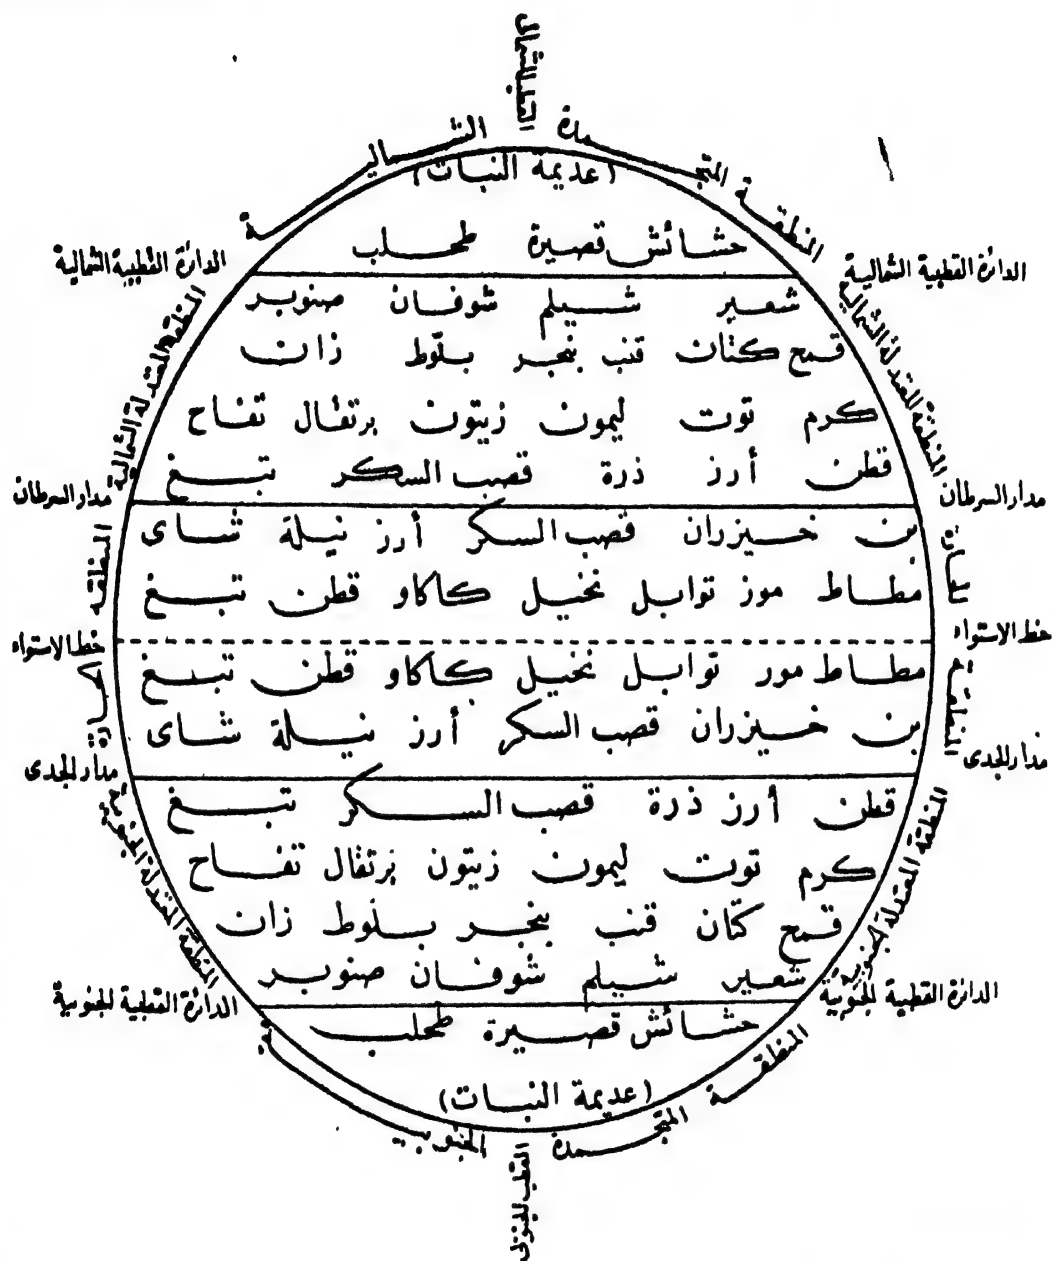 القطب الشمالى
المنطقة المتجمدة الشمالية
(عديمة النبات)
حشائش قصيرة طحلب
الدائرة القطبية الشمالية
الدائرة القطبية الشمالية
شعير شيلم شوفان صنوبر
قمح كتان قنب بنجر بلّوط زان
كرم توت ليمون زيتون برتقال تفاح
قطن أرز ذرة قصب السكر تبغ
المنطقة المعتدلة الشمالية
المنطقة المعتدلة الشمالية
مدار السرطان
مدار السرطان
بن خيزران قصب السكر أرز نيلة شاى
مطاط موز توابل نخيل كاكاو قطن تبغ
المنطقة الحارة
المنطقة الحارة
خط الاستواء
خط الاستواء
مطاط مور توابل نخيل كاكاو قطن تبغ
بن خيزران قصب السكر أرز نيلة شاى
مدار الجدى
مدار الجدى
قطن أرز ذرة قصب السكر تبغ
كرم توت ليمون زيتون برتقال تفاح
قمح كتّان قنب بنجر بلّوط زان
شعير شيلم شوفان صنوبر
المنطقة المعتدلة الجنوبية
المنطقة المعتدلة الجنوبية
الدائرة القطبية الجنوبية
الدائرة القطبية الجنوبية
حشائش قصيرة طحلب
(عديمة النبات)
المنطقة المتجمدة الجنوبية
القطب الجنوبى